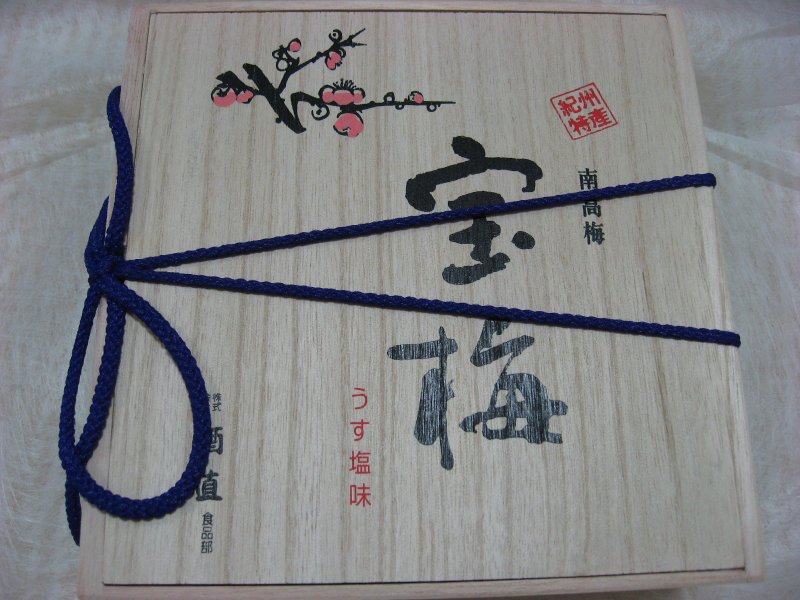 紀州
特産
南高梅
宝梅
うす塩味
株式
酒直
食品部